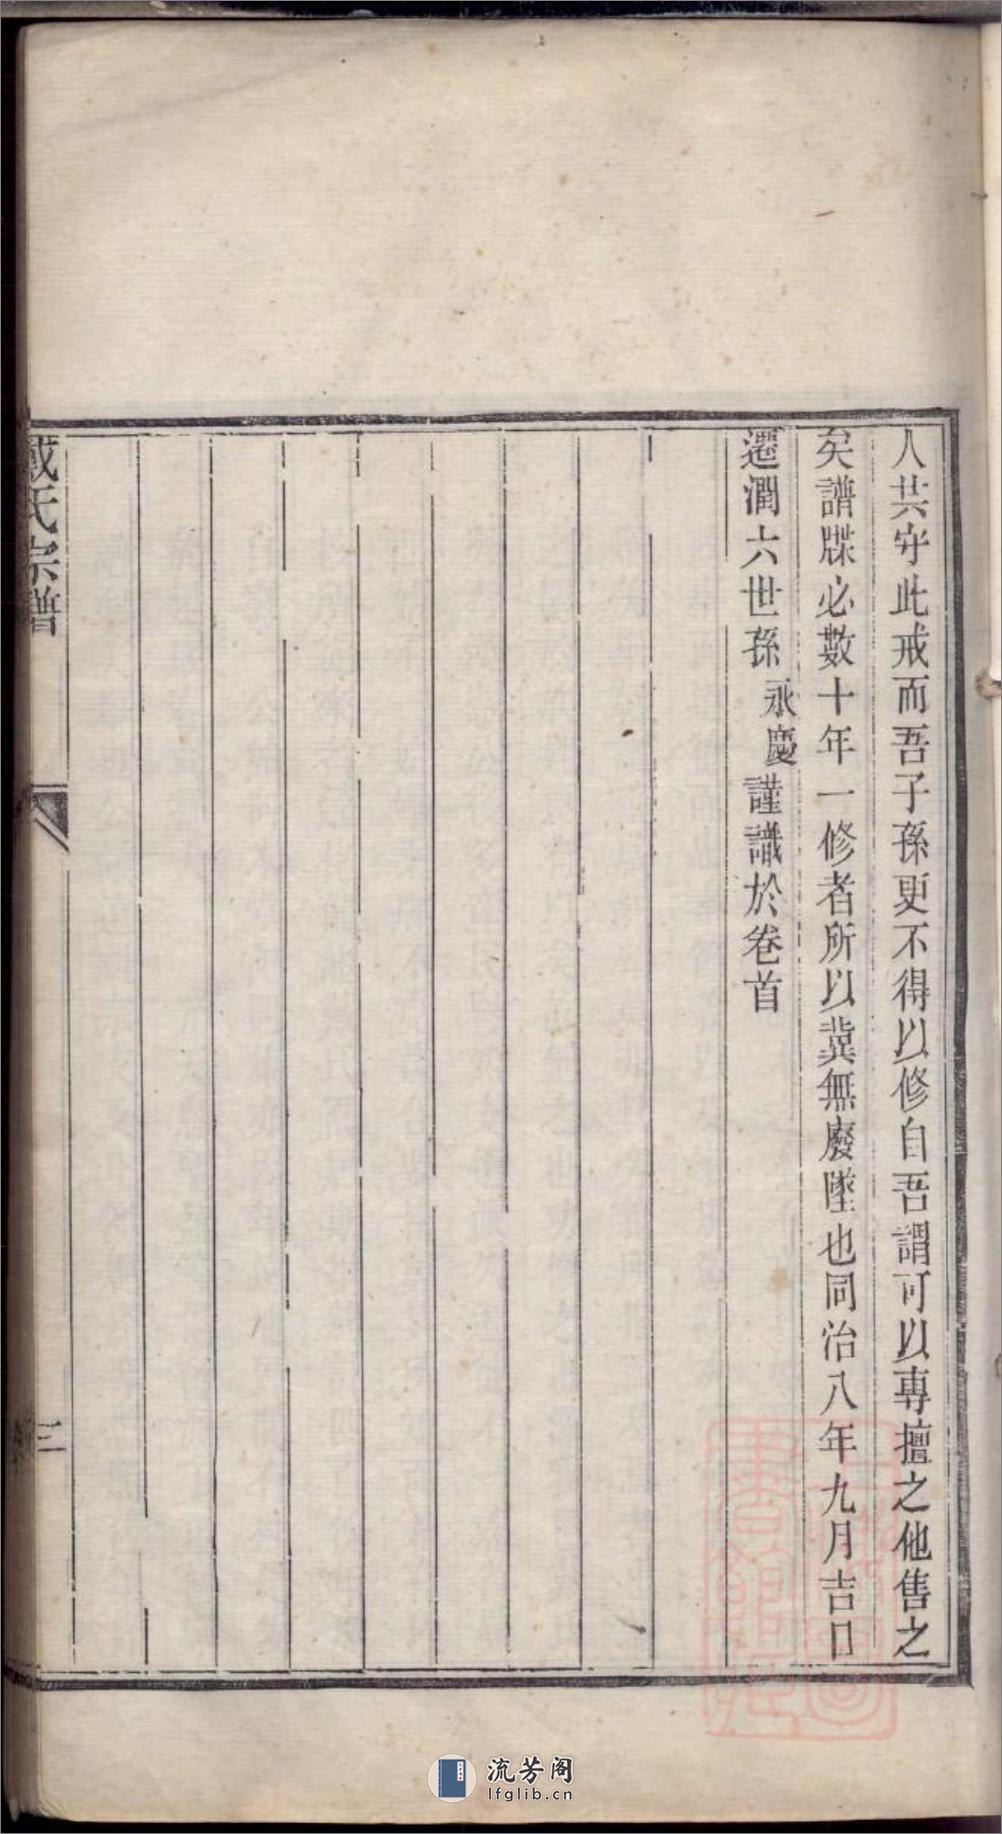 人共守此戒而吾子孫更不得以修自吾謂可以專擅之他售之
矣譜牒必數十年一修者所以冀無廢墜也同治八年九月吉日
遷潤六世孫永慶謹識於卷首
戴氏宗譜
三
流芳阁
lfglib.cn